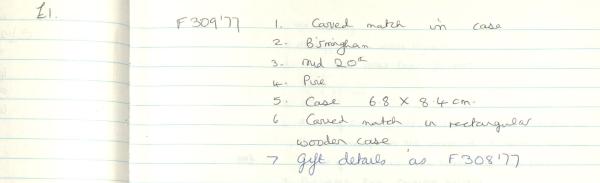 £1.
F309'77 1. Carved match in case
2. B'mingham
3. mid 20th
4. Pine
5. Case 68 X 8.4 cm.
6 Carved match in rectangular
wooden case
7 Gift details as F308'77